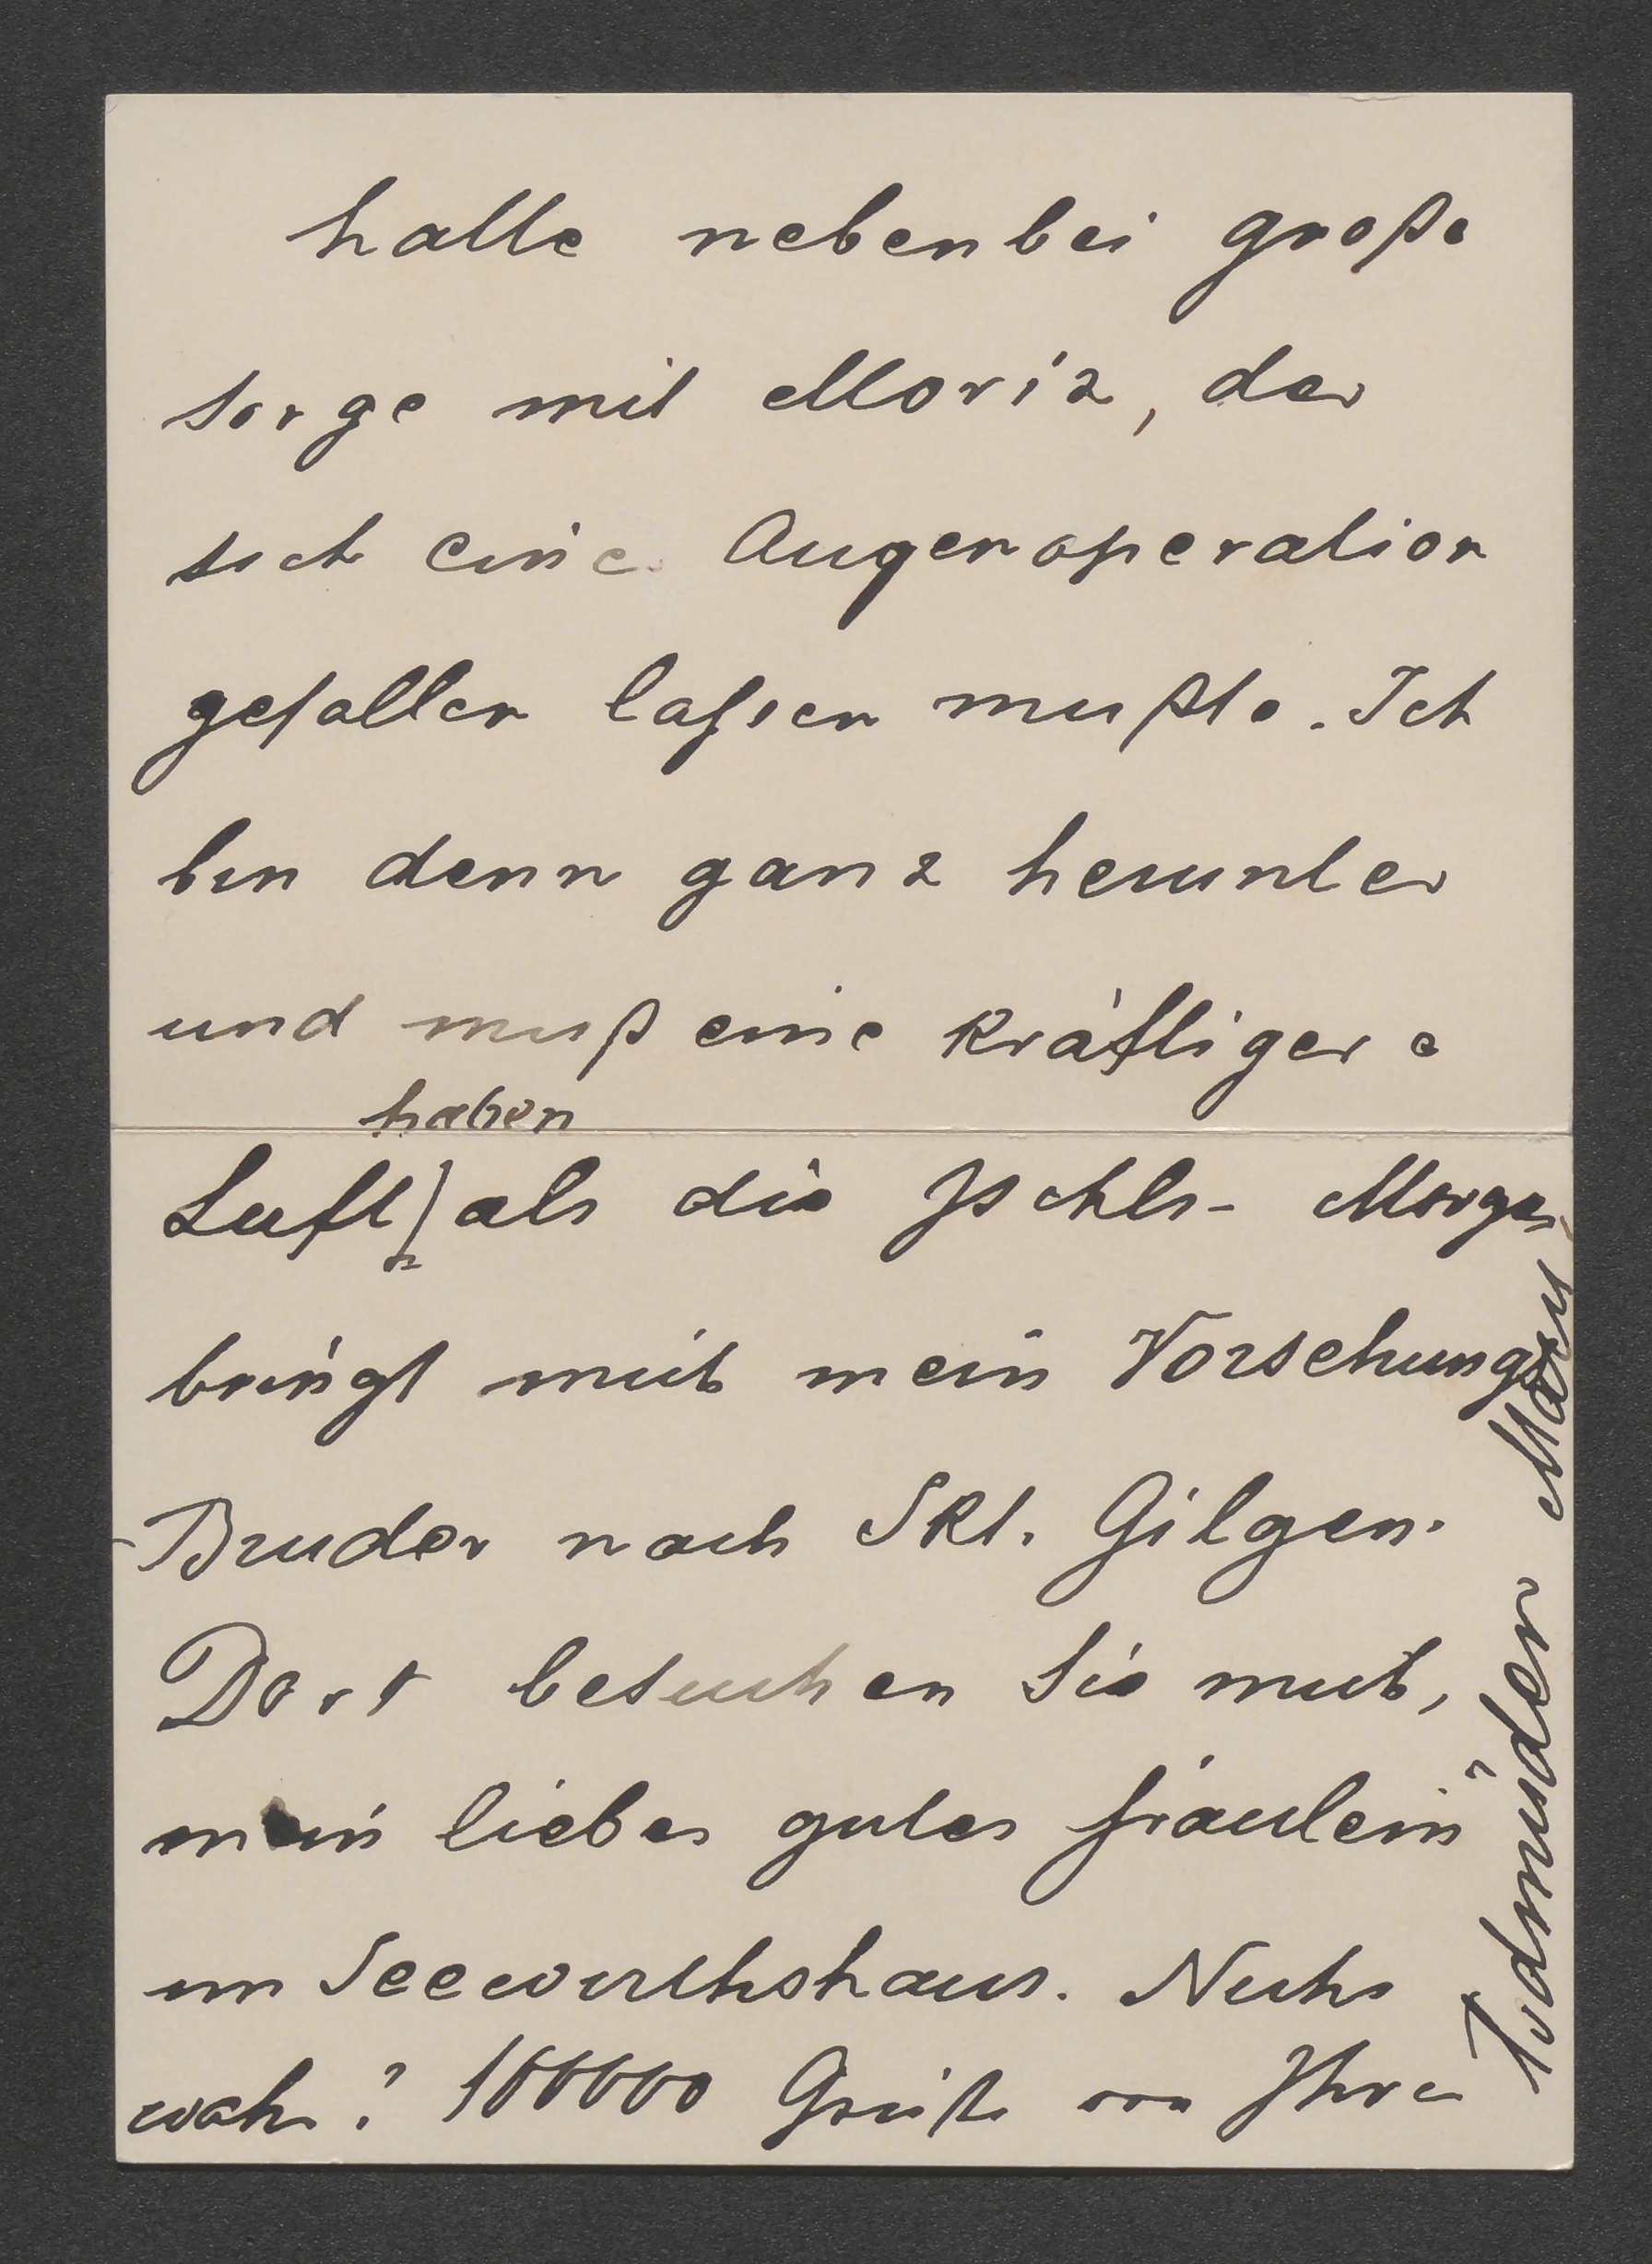 hatte nebenbei große
Sorge mit Moriz, der
sich eine Augenoperation
gefallen laßen mußte. Ich
bin denn ganz herunter
und muß eine kräftigere
haben
Luft als die Ischls - Morgen
bringt mich mein Vorsehungs
-Bruder nach Skt. Gilgen.
Dort besuchen Sie mich,
mein liebes gutes Fräulein
im Seewirthshaus. Nicht
wahr? 100000 Grüße von Ihrer
Todmüden Marie